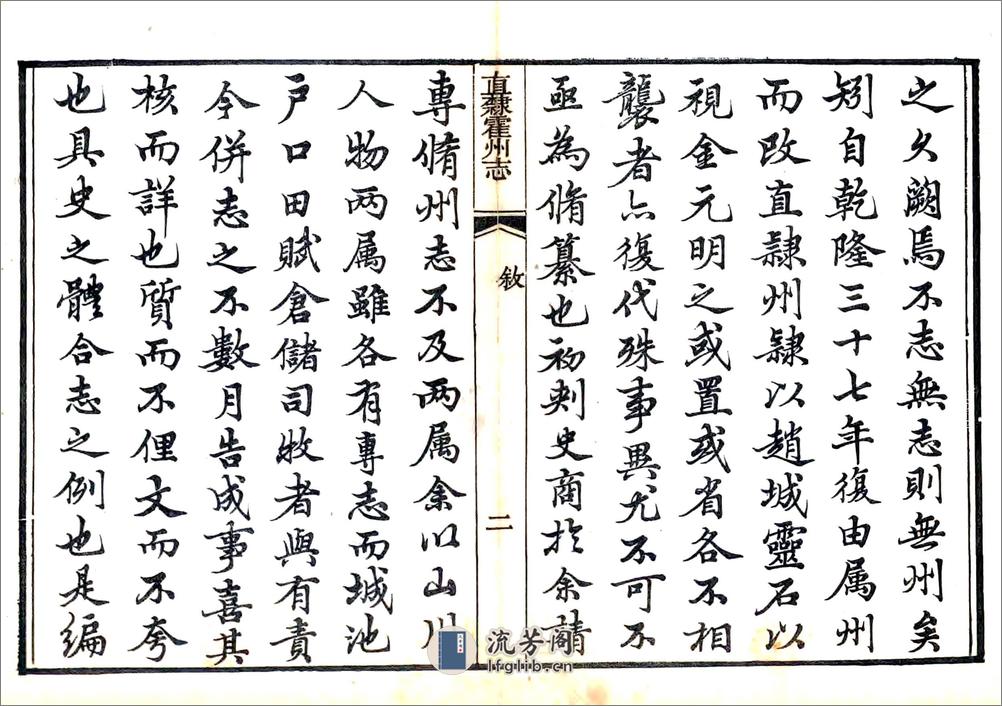 之久闕焉不志無志則無州矣
矧自乾隆三十七年復由属州
而改直隸州隸以趙城靈石以
視金元明之或置或省各不相
襲者亦復代殊事異尤不可不
亟為脩纂也初刺史商於余請
直隸霍州志
敘
二
專脩州志不及两属余以山川
人物两属雖各有專志而城池
戶口田賦倉儲司牧者與有責
今併志之不數月告成事喜其
核而詳也質而不俚文而不夸
也具史之體合志之例也是編
流芳阁
lfglib.cn